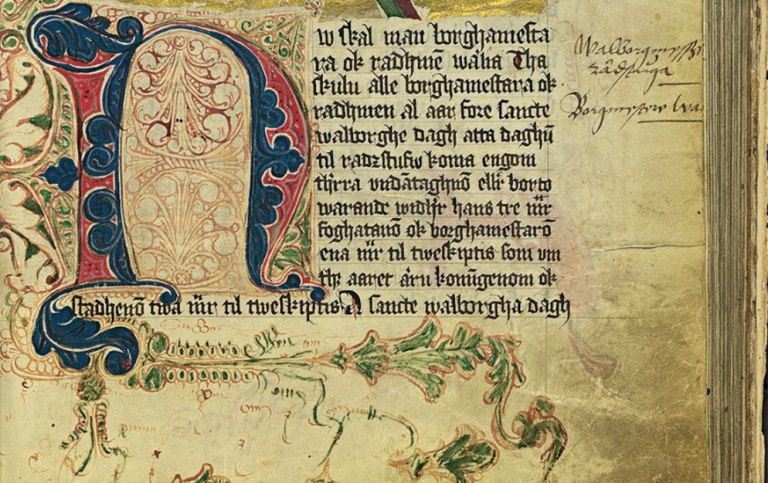 Nw skal man borghamesta
ra ok radhmē wælia Tha
skulu alle borghamestara ok
radhmen al aar fore sancte
walborghe dagh atta daghū
til radzstufw koma engom
thērra vndātaghnō ellr borto
warande widhr hans tre mr
foghatanō ok borghamestarō
ena mr til tweskiptis som vm
thz aaret ärn konūgenom ok
stadhenō twa mr til tweskiptis A sancte walborgha dagh
Walborgmesse
rådstuga
Borgmestere wa